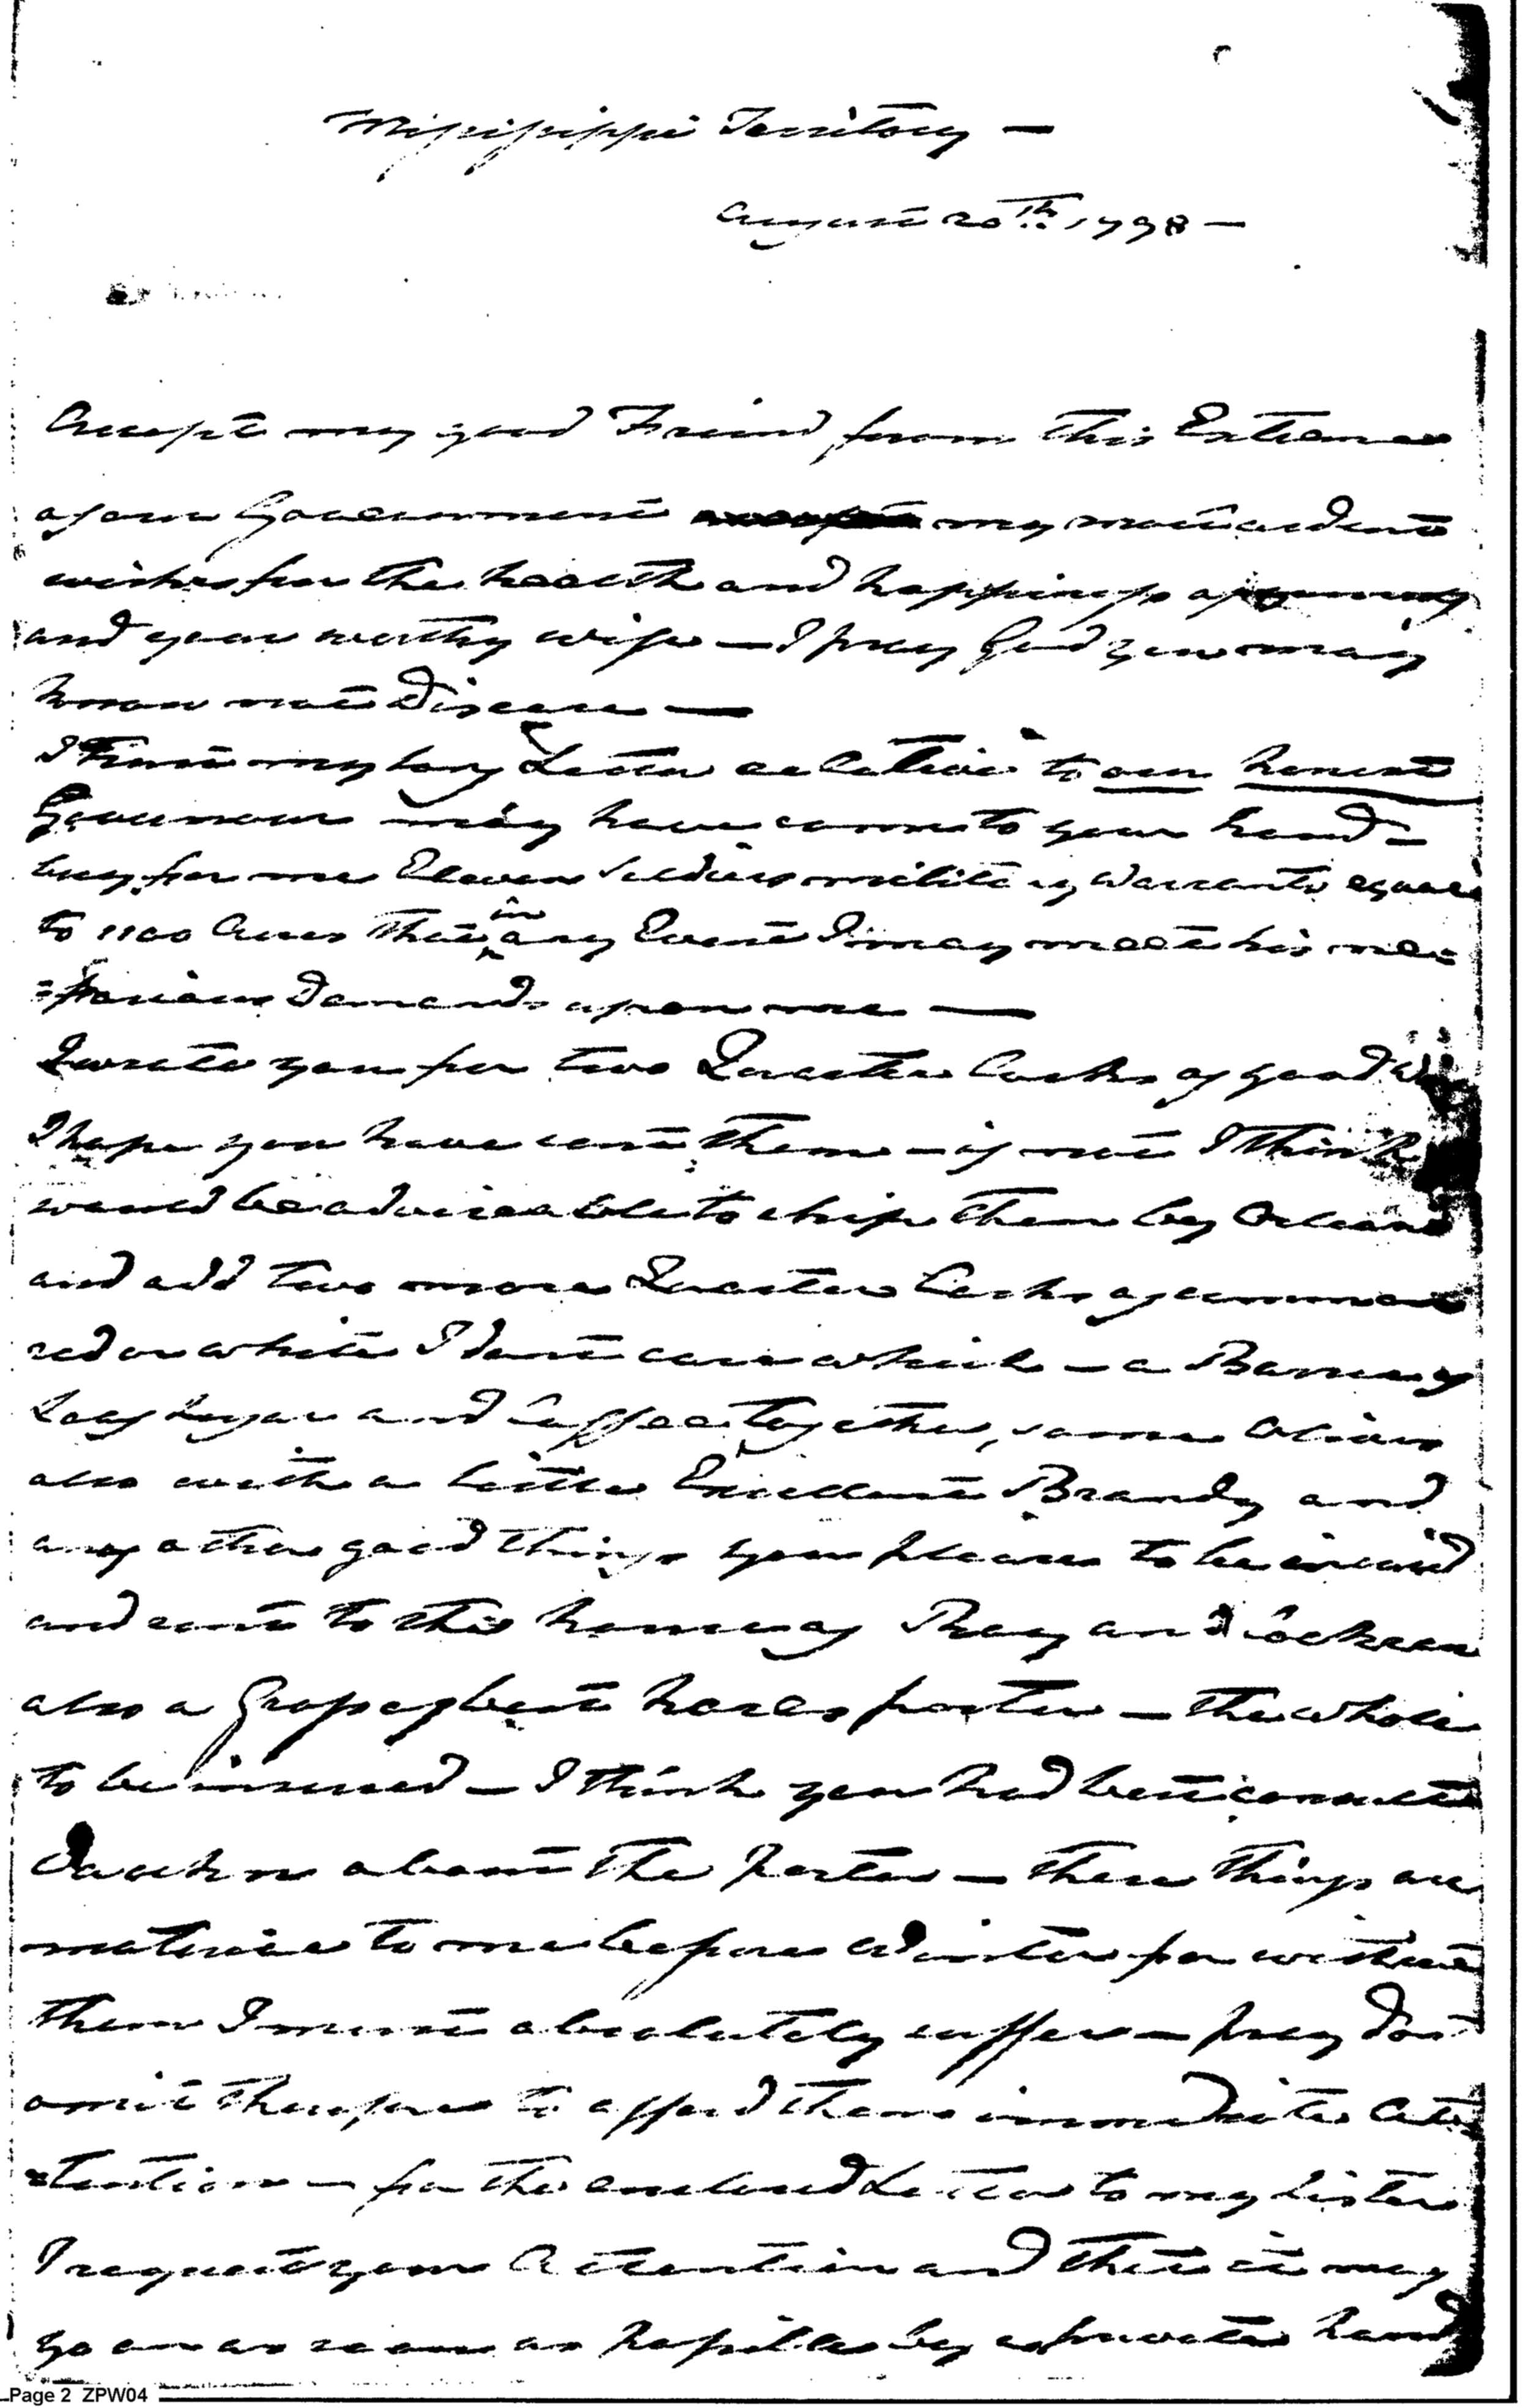 Missisippi Territory —
August 20th. 1798 —
Accept my good Friend from this Extreme
of our Government my most ardent
wishes for the health and happiness of
and your worthy wife — I pray God you may
know not Disease —
I Trust my long Letter relative to our honest
Governour may have come to your hand —
buy for me Eleven Soldiers military Warrants equal
to 1100 Acres that in any Event I may meet his ne=
=farious Demands upon me —
I wrote you for two Quarter Casks of good
I hope you have sent them — if not I think
would be adviseable to ship them by Orleans
and add two more Quarter Casks of common
red or white I dont care which — a Barrel of
Loaf Sugar and Coffee together, some Olives
also with a little Excellent Brandy and
any other good things you please to be insured
and sent to the house of
also a Groce of best porter — the whole
to be insured — I think you had best consult
about the Porter — these things are
material to me before Winter for without
them I must absolutely suffer — pray dont
omit therefore to afford them immediate At=
=tention — for the enclosed Letter to my Sister
I request your Attention and that it may
go on as soon as possible by a private hand
Page 2 ZPW04